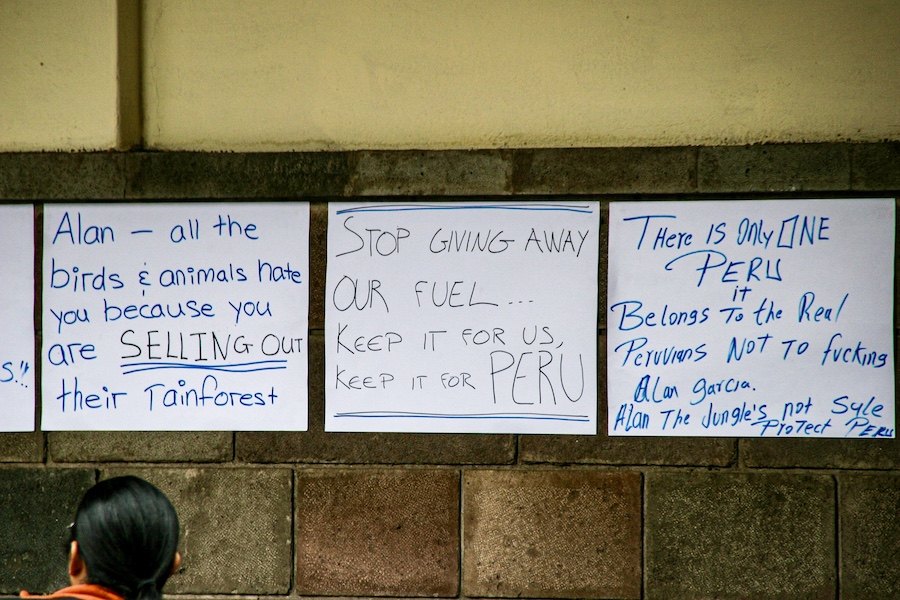 s.!!
Alan – all the
birds & animals hate
you because you
are SELLING OUT
their rainforest
STOP GIVING AWAY
OUR FUEL...
KEEP IT FOR US,
KEEP IT FOR PERU
THere IS Only ONE
PERU
it
Belongs To the Real
Peruvians NOT TO fucking
Alan garcia.
Alan The Jungle's not Syle
ProTect PERU